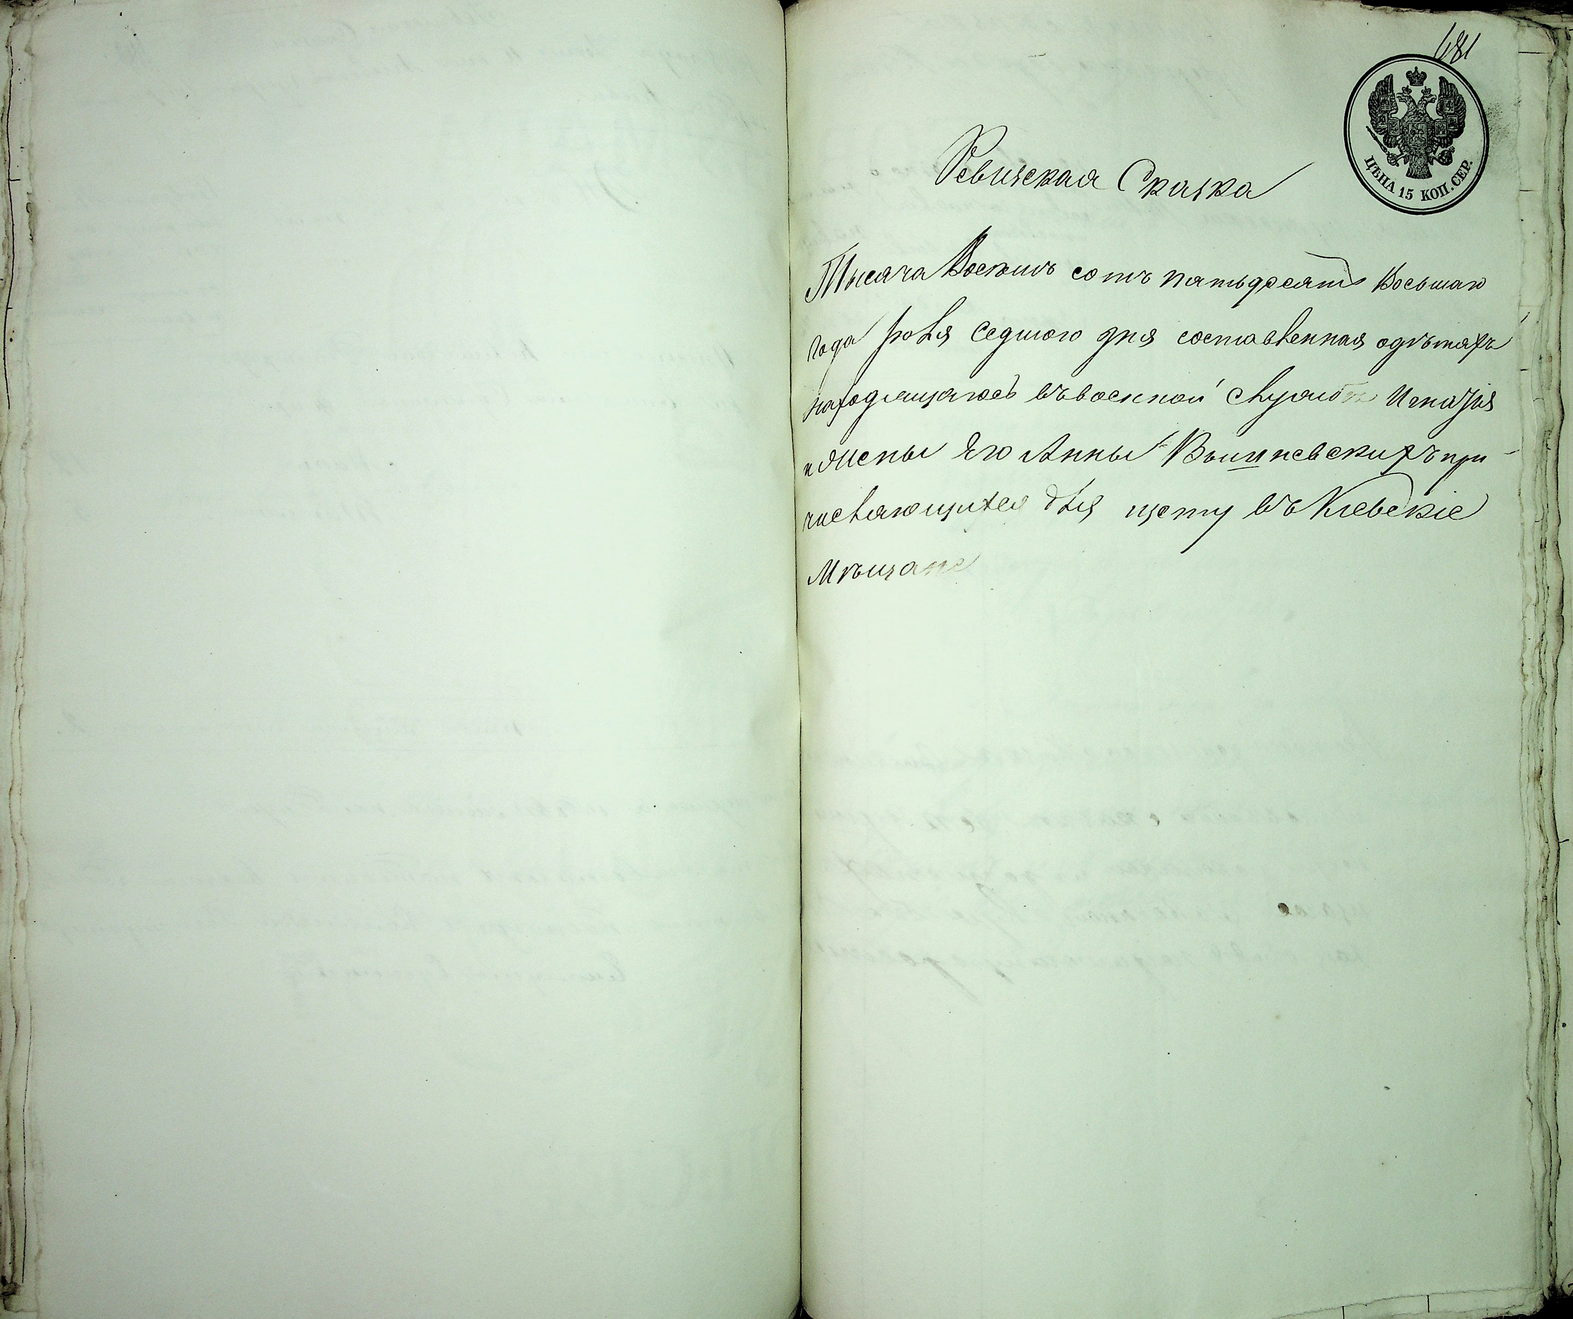 681
ЦѢНА 15 КОП. СЕР.
Ревизская Сказка
Тысяча Восемь сотъ пятьдесятъ Восьмаго
года Іюля Седмого дня составленная одѣтяхъ
находящагося въ военной службѣ Игнатія
и жены Его Анны Вышневскихъ при-
числяющихся для щету въ Кіевскіе
Мѣщане